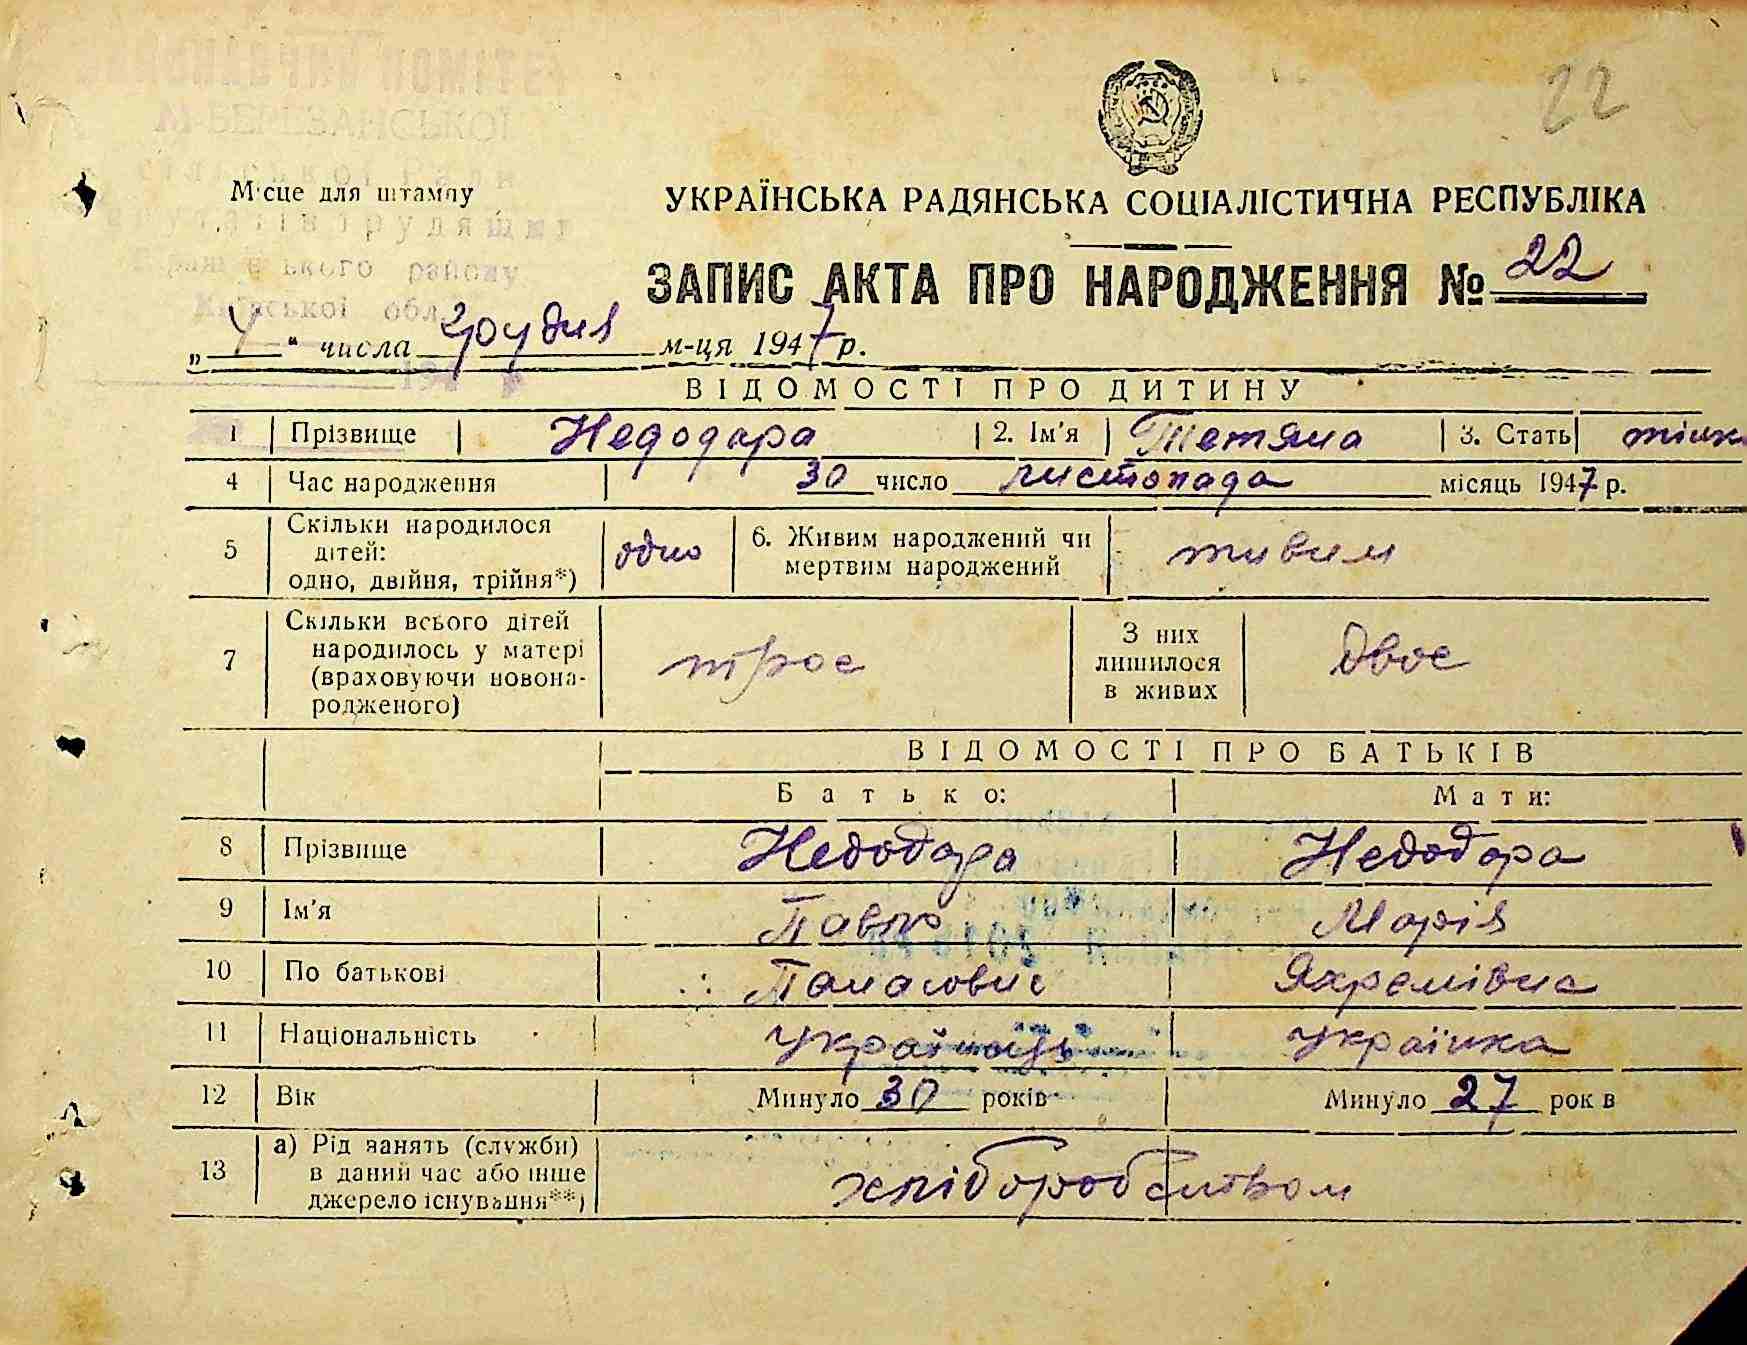 22
М-БЕРЕЗАНСЬКОЇ
Місце для штампу
УКРАЇНСЬКА РАДЯНСЬКА СОЦІАЛІСТИЧНА РЕСПУБЛІКА
ЗАПИС АКТА ПРО НАРОДЖЕННЯ № 22
району
Київської обл.
„ 4 “ числа грудня м-ця 1947 р.
ВІДОМОСТІ ПРО ДИТИНУ
1 Прізвище Недодара 2. Ім'я Тетяна 3. Стать жінк
4 Час народження 30 число листопада місяць 1947 р.
5 Скільки народилося дітей: одно, двійня, трійня*) одно 6. Живим народжений чи мертвим народжений живим
7 Скільки всього дітей народилось у матері (враховуючи новонародженого) троє З них лишилося в живих двоє
ВІДОМОСТІ ПРО БАТЬКІВ
Батько: Мати:
8 Прізвище Недодара Недодара
9 Ім'я Павло Марія
10 По батькові Панасович Яхремівна
11 Національність українець українка
12 Вік Минуло 30 років Минуло 27 рок в
13 а) Рід занять (служби) в даний час або інше джерело існування**) хліборобством